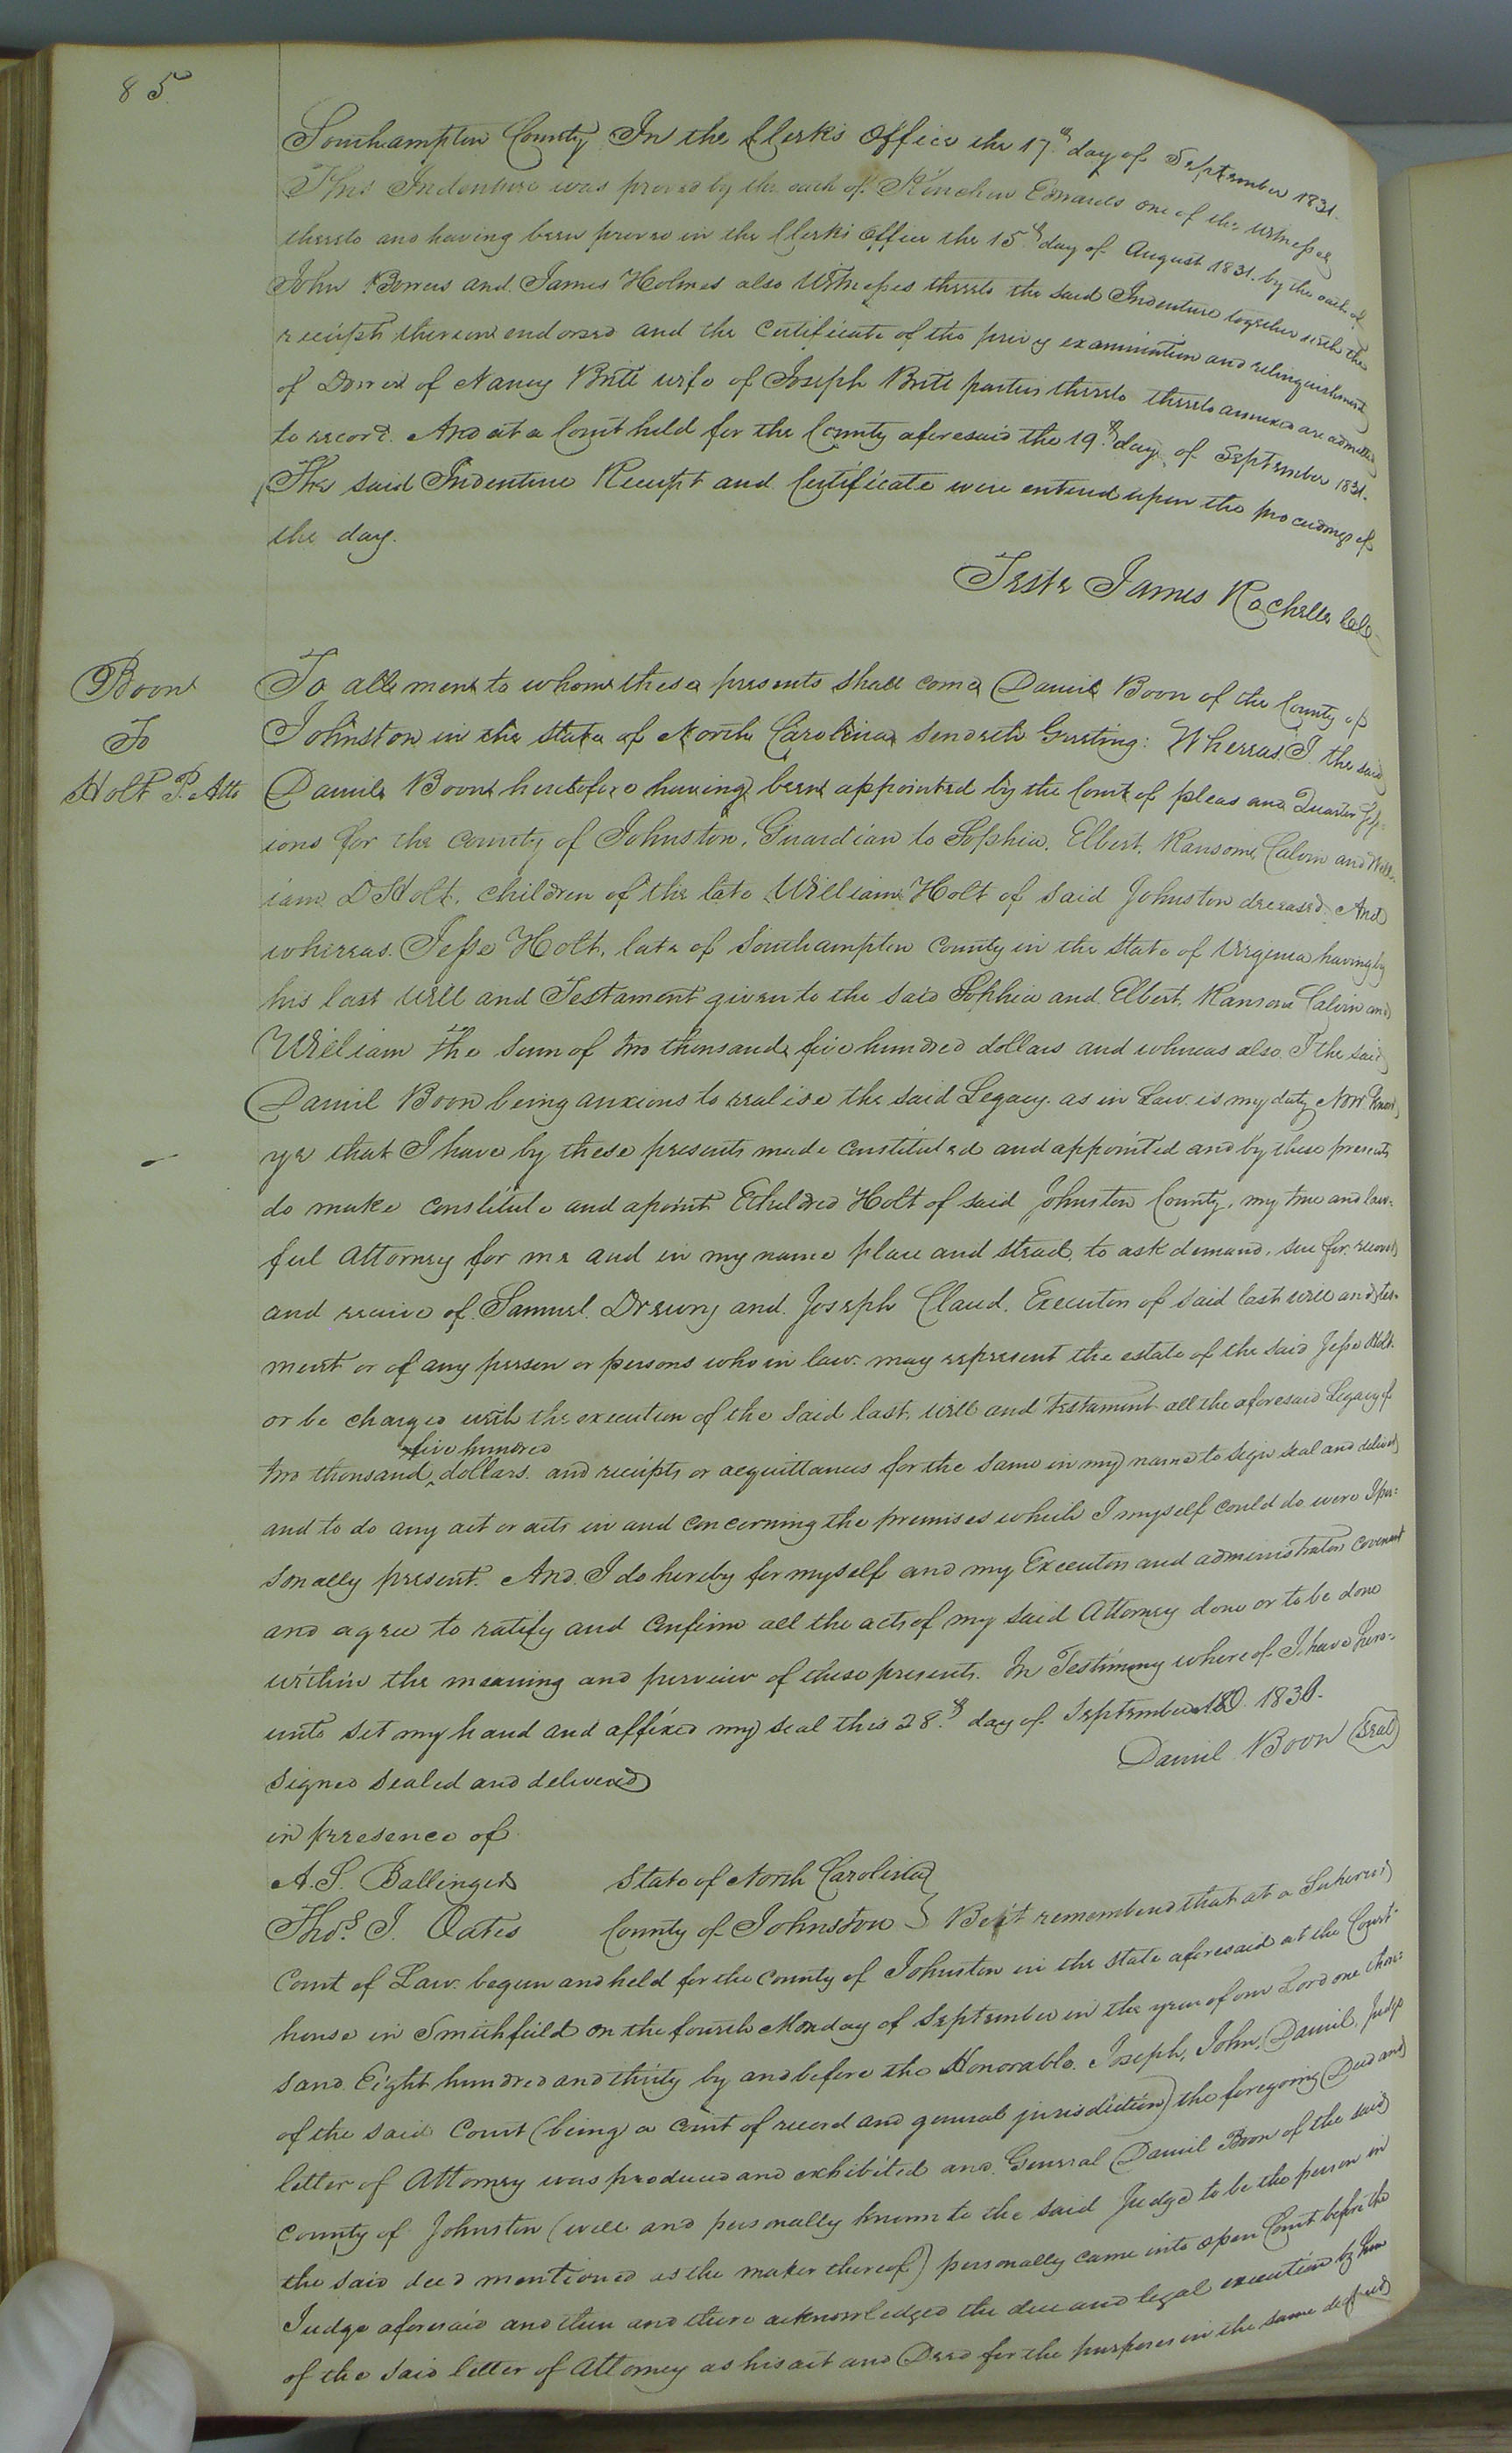 85
Southampton County In the Clerks Office the 17th day of September 1831.
This Indenture was proved by the oath of Kinchen Edwards one of the Witnesses
thereto and having been proved in the Clerks Office the 15th day of August 1831. by the oath of
John and James Holmes also Witnesses thereto the said Indenture together with the
receipt thereon endorsed and the Certificate of the privy examination and relinquishment
of Dower of Nancy Brett wife of Joseph Brett parties thereto thereto annexed are admitted
to record. And at a Court held for the County aforesaid the 19th day of September 1831.
The said Indenture Receipt and Certificate were entered upon the proceedings of
the day.
Teste James Rochelle
Boon
To
Holt P. Atto
To all men to whom these presents shall come Daniel Boon of the County of
Johnston in the State of North Carolina sendeth Greeting: Whereas I the said
Daniel Boon heretofore having been appointed by the Court of pleas and Quarter Sess-
ions for the county of Johnston, Guardian to Sophia, Elbert, Ransom, Calvin and Will-
iam D Holt, children of the late William Holt of said Johnston deceased. And
whereas Jesse Holt, late of Southampton County in the State of Virginia having by
his last Will and Testament given to the said Sophia and Elbert, Ransom Calvin and
William the sum of two thousand five hundred dollars and whereas also I the said
Daniel Boon being anxious to realise the said Legacy as in Law is my duty Now Know
ye that I have by these presents made constituted and appointed and by these presents
do make constitute and apoint Etheldred Holt of said Johnston County, my true and law-
ful Attorney for me and in my name place and stead, to ask demand, sue for, recover
and receive of Samuel Drewry and Joseph Claud, Executors of said last will and tes-
ment or of any person or persons who in law may represent the estate of the said Jesse Holt
or be charged with the execution of the said last, Will and Testament all the aforesaid Legacy of
five hundred
two thousand dollars. and receipts or acquittances for the same in my name to sign seal and deliver
and to do any act or acts in and concerning the premises which I myself could do were I per-
sonally present. And I do hereby for myself and my Executors and administrators covenant
and agree to ratify and confirm all the acts of my said Attorney done or to be done
within the meaning and perview of these presents. In Testimony whereof I have here-
unto set my hand and affixed my seal this 28th day of September 1830.
Daniel Boon (Seal)
Signed sealed and delivered
in presence of
A. S. Ballinger
State of North Carolina
Thos. J. Oates
County of Johnston } Be it remembered that at a Superior
Court of Law begun and held for the County of Johnston in the State aforesaid at the Court
house in Smithfield on the fourth Monday of September in the year of our Lord one thou-
sand Eight hundred and thirty by and before the Honorable Joseph, John, Daniel, Judge
of the said Court (being a Court of record and general jurisdiction) the foregoing Deed and
letter of Attorney was produced and exhibited and General Daniel Boon of the said
County of Johnston (well and personally known to the said Judge to be the person in
the said deed mentioned as the maker thereof) personally came into open Court before the
Judge aforesaid and then and there acknowledged the due and legal execution by him
of the said letter of Attorney as his act and Deed for the purposes in the same